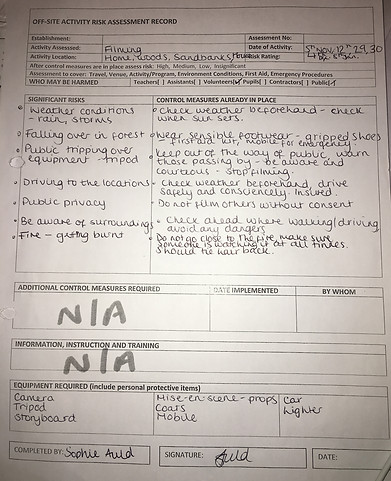 OFF-SITE ACTIVITY RISK ASSESSMENT RECORD
Establishment: Assessment No:
Activity Assessed: Filming Date of Activity: 5th Nov, 12th 29, 30
Activity Location: Home, Woods, Sandbanks, Risk Rating:
After control measures are in place assess risk: High, Medium, Low, Insignificant
Assessment to cover: Travel, Venue, Activity/Program, Environment Conditions, First Aid, Emergency Procedures
WHO MAY BE HARMED Teachers| Assistants| Volunteers|✓ Pupils| Contractors| Public|✓
SIGNIFICANT RISKS CONTROL MEASURES ALREADY IN PLACE
• Weather conditions • Check weather beforehand - check
- rain, storms when sun sets.
• Falling over in forest • Wear sensible footwear - gripped shoes
first aid kit, mobile for emergency.
• Public tripping over • Keep out of the way of public, warn
equipment - tripod those passing by - be aware and
courteous - stop filming.
• Driving to the locations • Check weather beforehand, drive
safely and consciencely. Insured.
• Public privacy • Do not film others without consent
• Be aware of surroundings • Check ahead where walking/driving
avoid any dangers
• Fire - getting burnt • Do not go close to the fire, make sure
someone is watching it at all times.
Should tie hair back.
ADDITIONAL CONTROL MEASURES REQUIRED DATE IMPLEMENTED BY WHOM
N/A
INFORMATION, INSTRUCTION AND TRAINING
N/A
EQUIPMENT REQUIRED (include personal protective items)
Camera Mise-en-scene - props Car
Tripod Coats Lighter
Storyboard Mobile
COMPLETED BY: Sophie Auld SIGNATURE: Auld DATE: